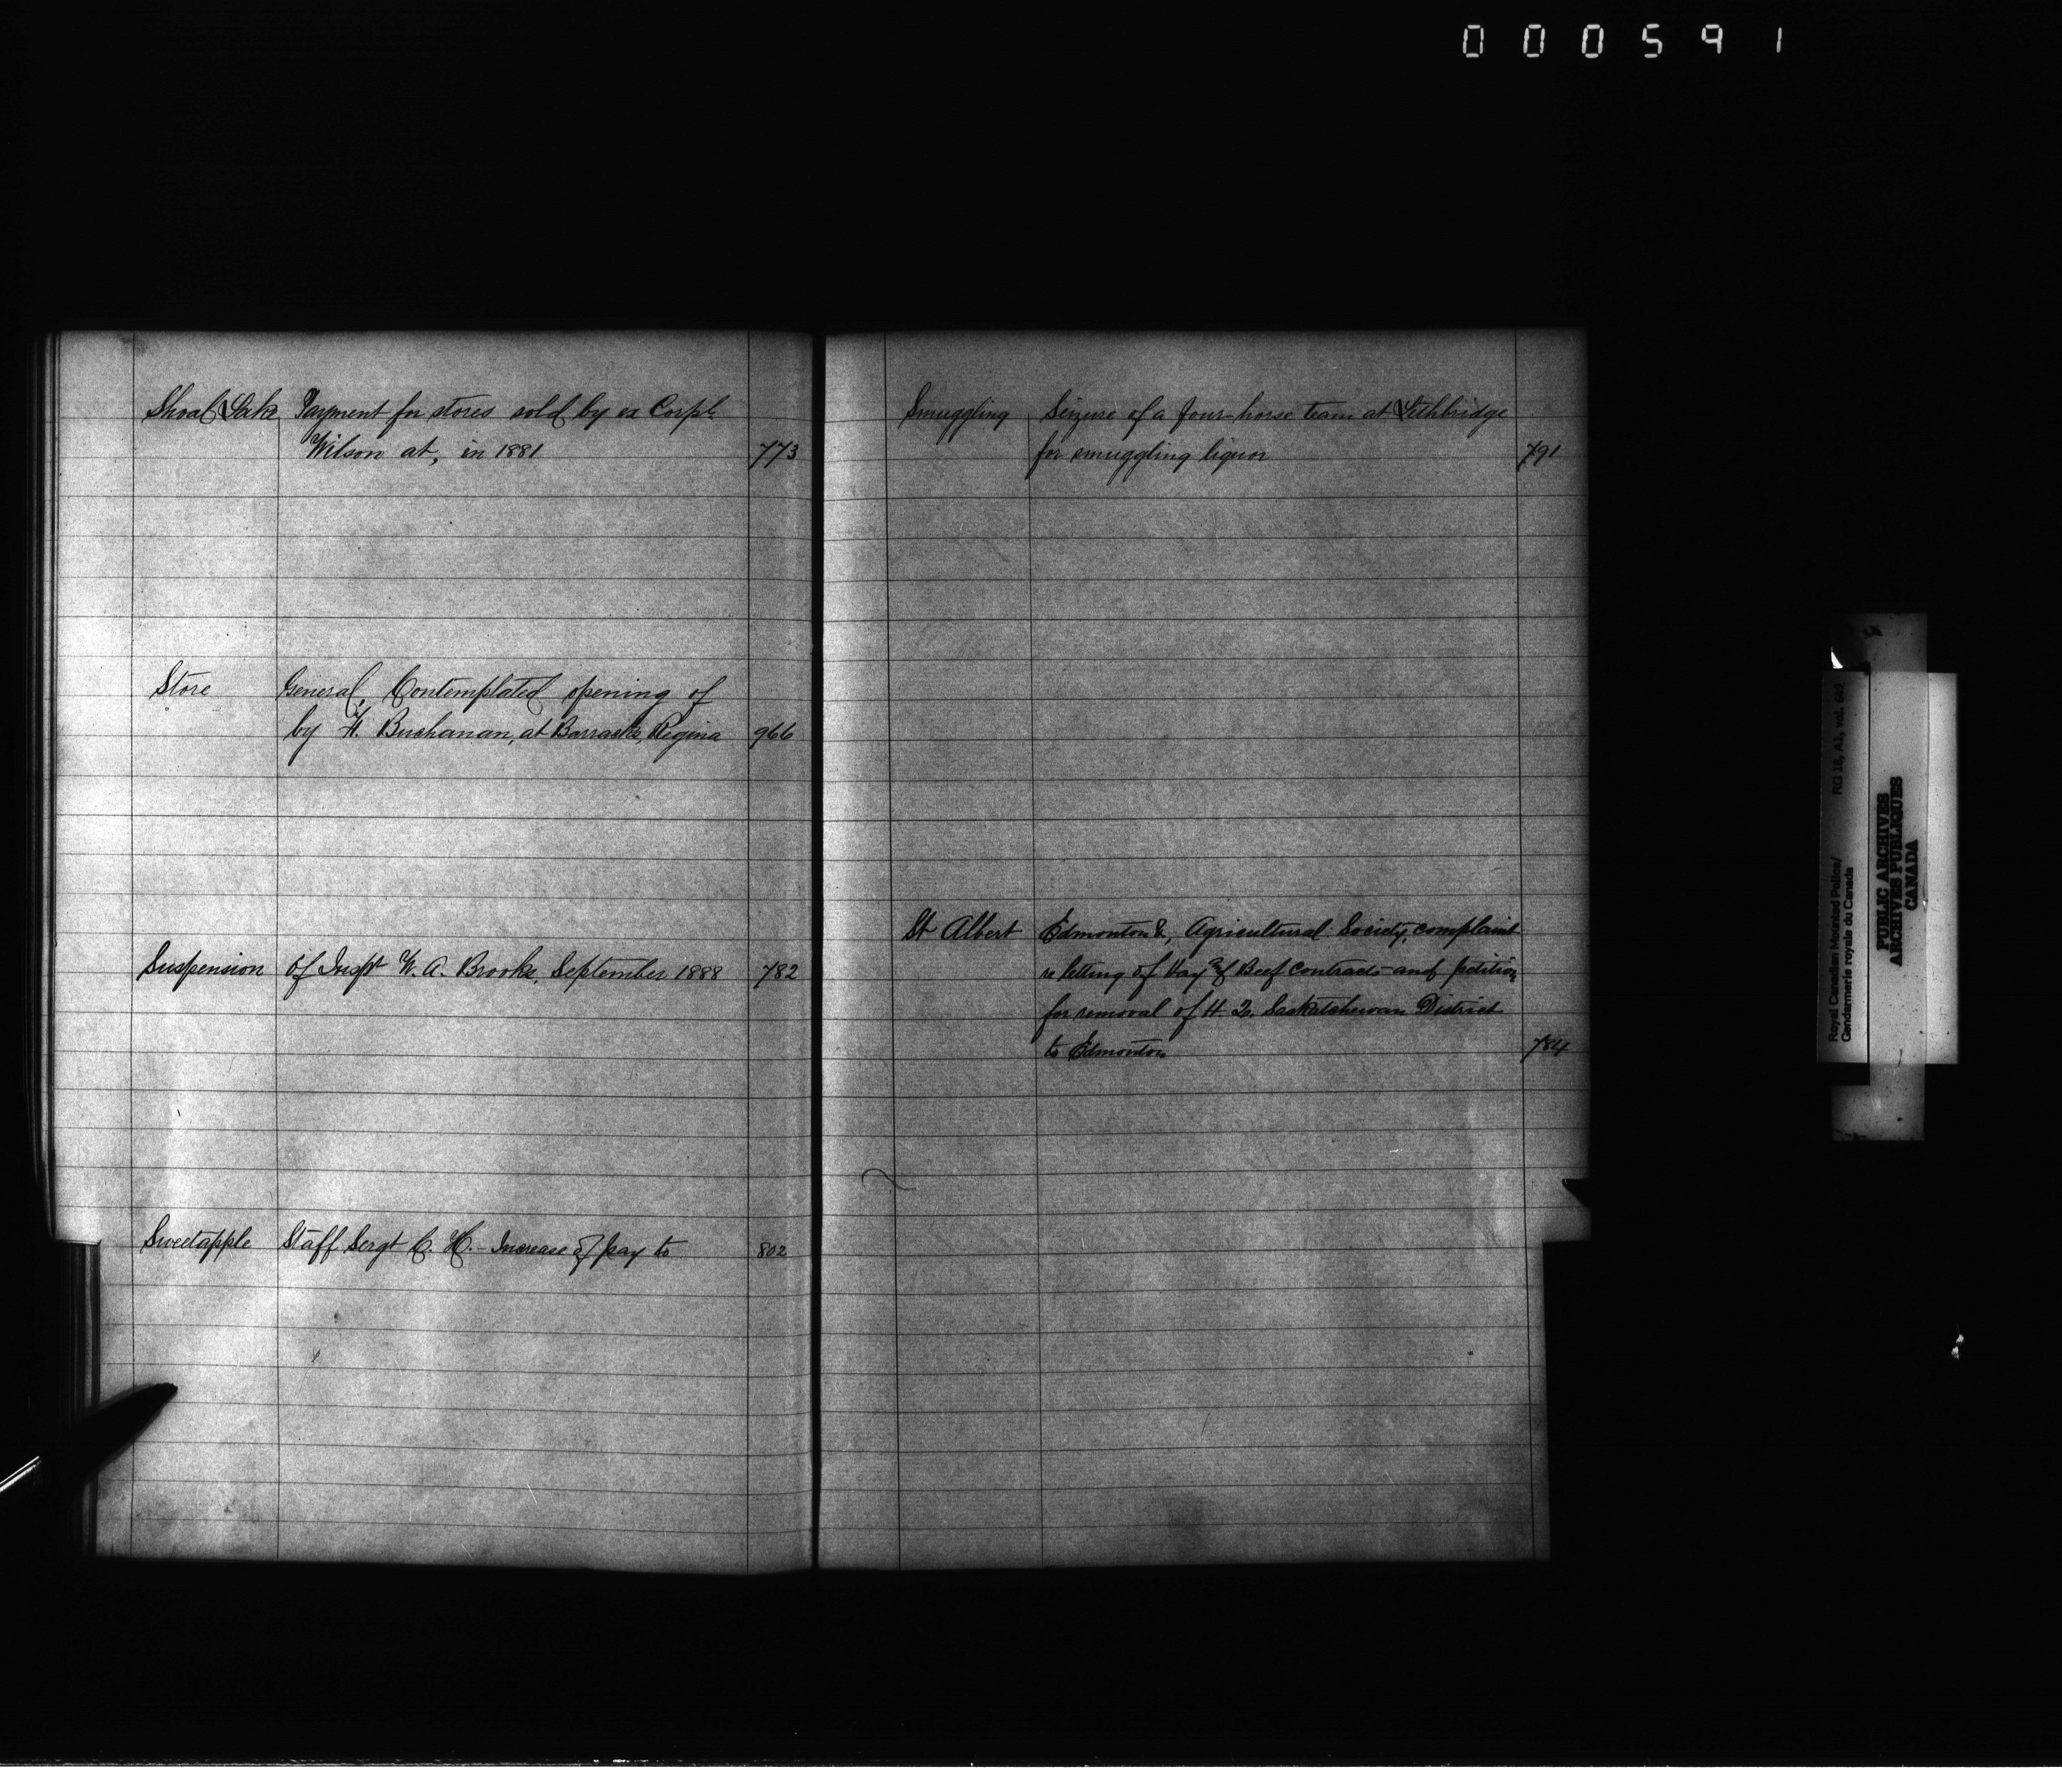 000591
Shoal Lake Payment for stores sold by ex Corpl
Wilson at, in 1881 773
Store General, Contemplated opening of
by H. Buchanan, at Barracks, Regina 966
Suspension of Inspr W. A. Brooks, September 1888 782
Sweetapple Staff Sergt C. H. - Increase of pay to 802
Smuggling Seizure of a four-horse team at Lethbridge
for smuggling liquor 791
St Albert Edmonton &, Agricultural Society, complaint
re letting of Hay & Beef Contracts and petition
for removal of H. Q. Saskatchewan District
to Edmonton 784
Royal Canadian Mounted Police/
Gendarmerie royale du Canada
RG 18, A1, vol.
PUBLIC ARCHIVES
ARCHIVES PUBLIQUES
CANADA